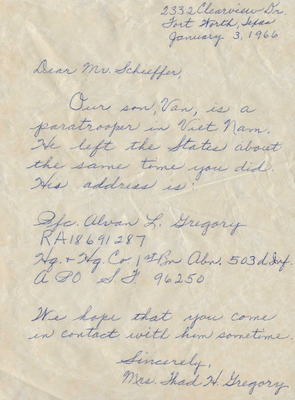 2332 Clearview Dr.
Fort Worth, Texas
January 3, 1966
Dear Mr. Schieffer,
Our son, Van, is a
paratrooper in Viet Nam.
He left the States about
the same time you did.
His address is:
Pfc. Alvan L. Gregory
RA18691287
Hq. + Hq. Co. 1st Bn Abn. 503d Inf.
A P O S. F. 96250
We hope that you come
in contact with him sometime.
Sincerely,
Mrs. Thad H. Gregory